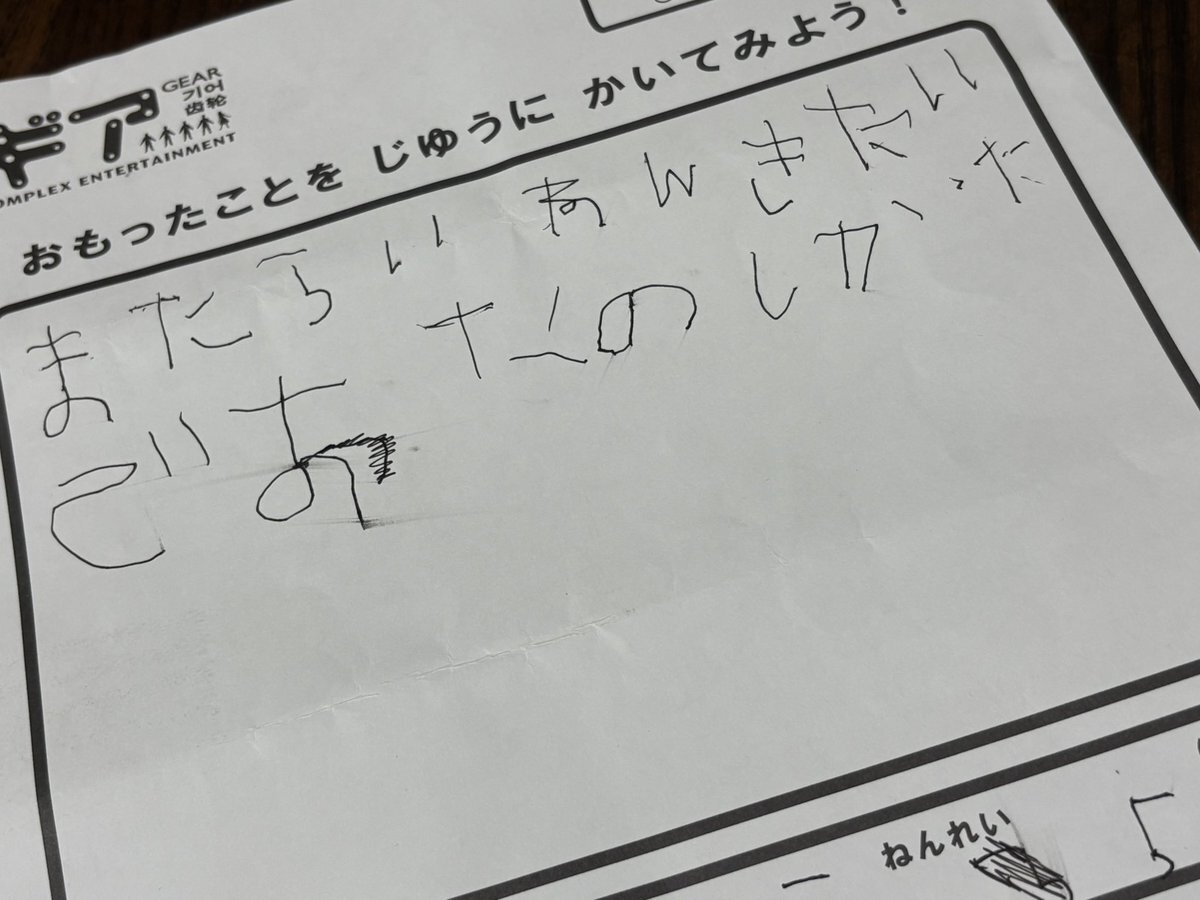 ギア
GEAR
기어
齿轮
OMPLEX ENTERTAINMENT
おもったことを じゆうに かいてみよう!
またらいねんきたい
たのしかった
ねんれい
5